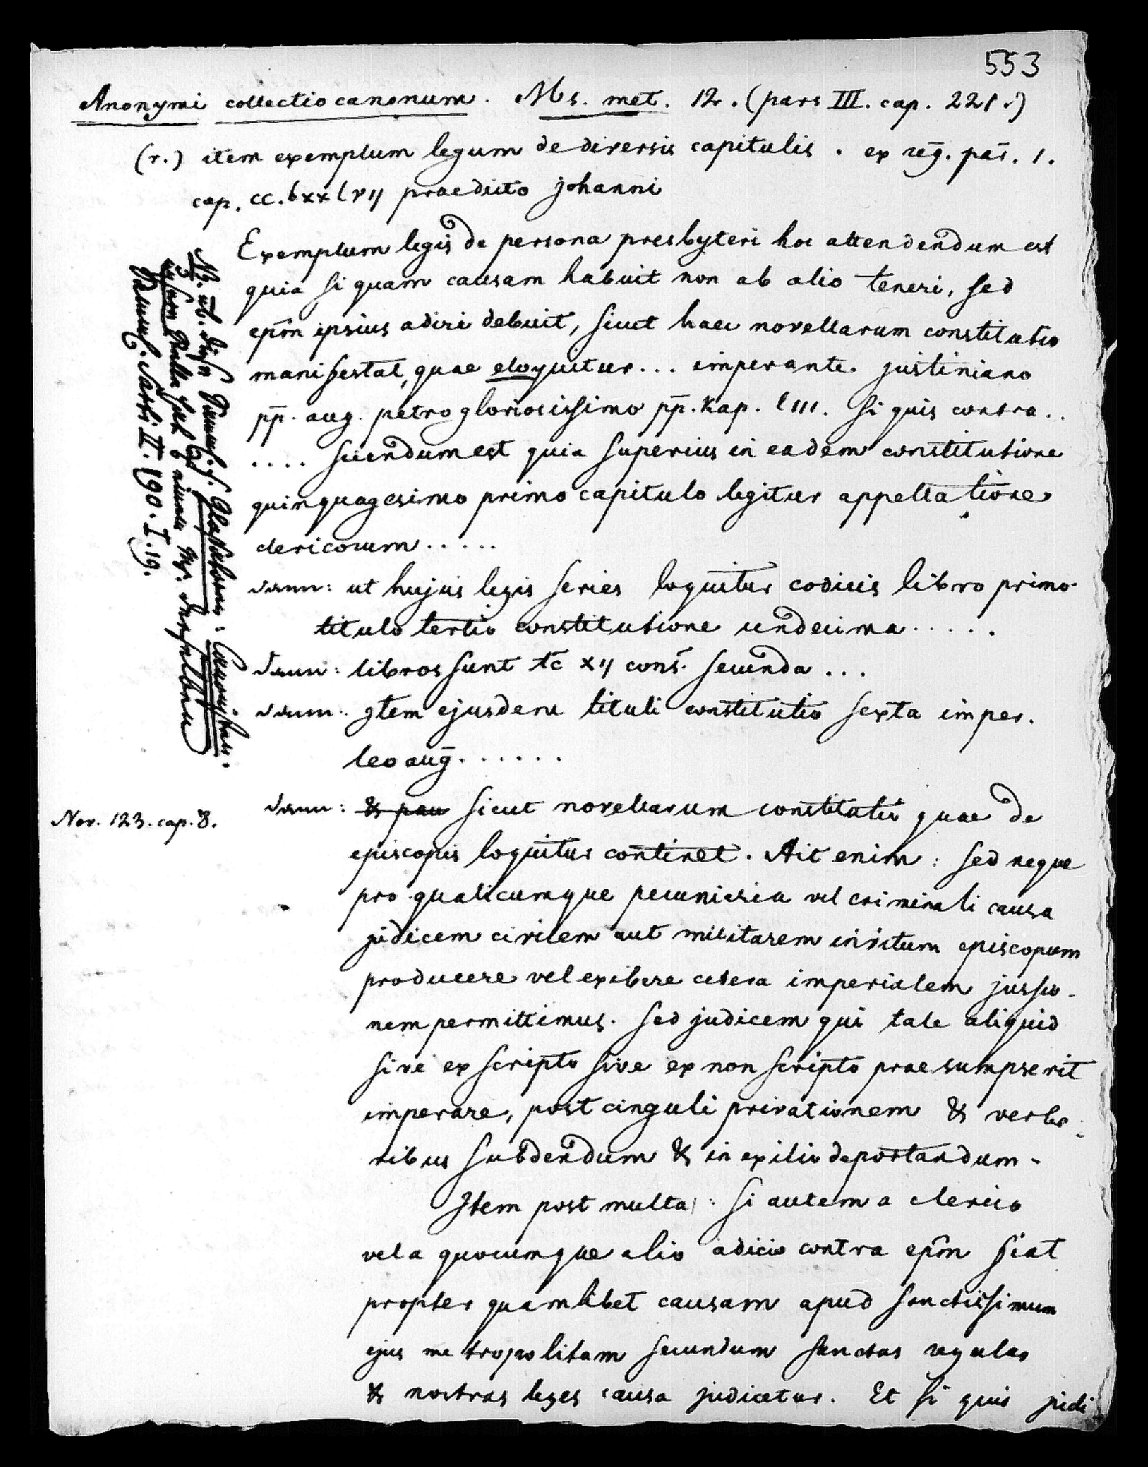 553
Anonymi collectio canonum. Ms. met. 12. (pars III. cap. 221.)
(r.) item exemplum legum de diversis capitulis. ex reg. pat. 1.
cap. cc. praedicto johanni
Exemplum legis de persona presbyteri hoc attendendum est
quia si quam causam habuit non ab alio teneri, sed
epm ipsius adiri debuit, sicut haec novellarum constitutio
manifestat, quae eloquitur... imperante justiniano
pp. aug. petro gloriosissimo pp. Kap. liii. si quis contra..
.... sciendum est quia superius in eadem constitutione
quinquagesimo primo capitulo legitur appellatione
clericorum.....
dann: ut hujus legis series loquitur codicis libro primo
titulo tertio constitutione undecima.....
dann: libros sunt tc xy const. secunda...
dann: Item ejusdem tituli constitutio sexta imper.
leo aug......
Nov. 123. cap. 8.
dann: sicut novellarum constitutio quae de
episcopis loquitur continet. Ait enim: sed neque
pro qualicumque pecuniaria vel criminali causa
judicem civilem aut militarem invitum episcopum
producere vel exibere citra imperialem jussio-
nem permittimus. sed judicem qui tale aliquid
sive ex scripto sive ex non scripto praesumpserit
imperare, post cinguli privationem & verbe-
ribus subdendum & in exilio deportandum.
Item post multa: si autem a clerico
vel a quocumque alio adicio contra epm fiat
propter quamlibet causam apud sanctissimum
ejus metropolitam secundum sanctas regulas
& nostras leges causa judicetur. Et si quis judi